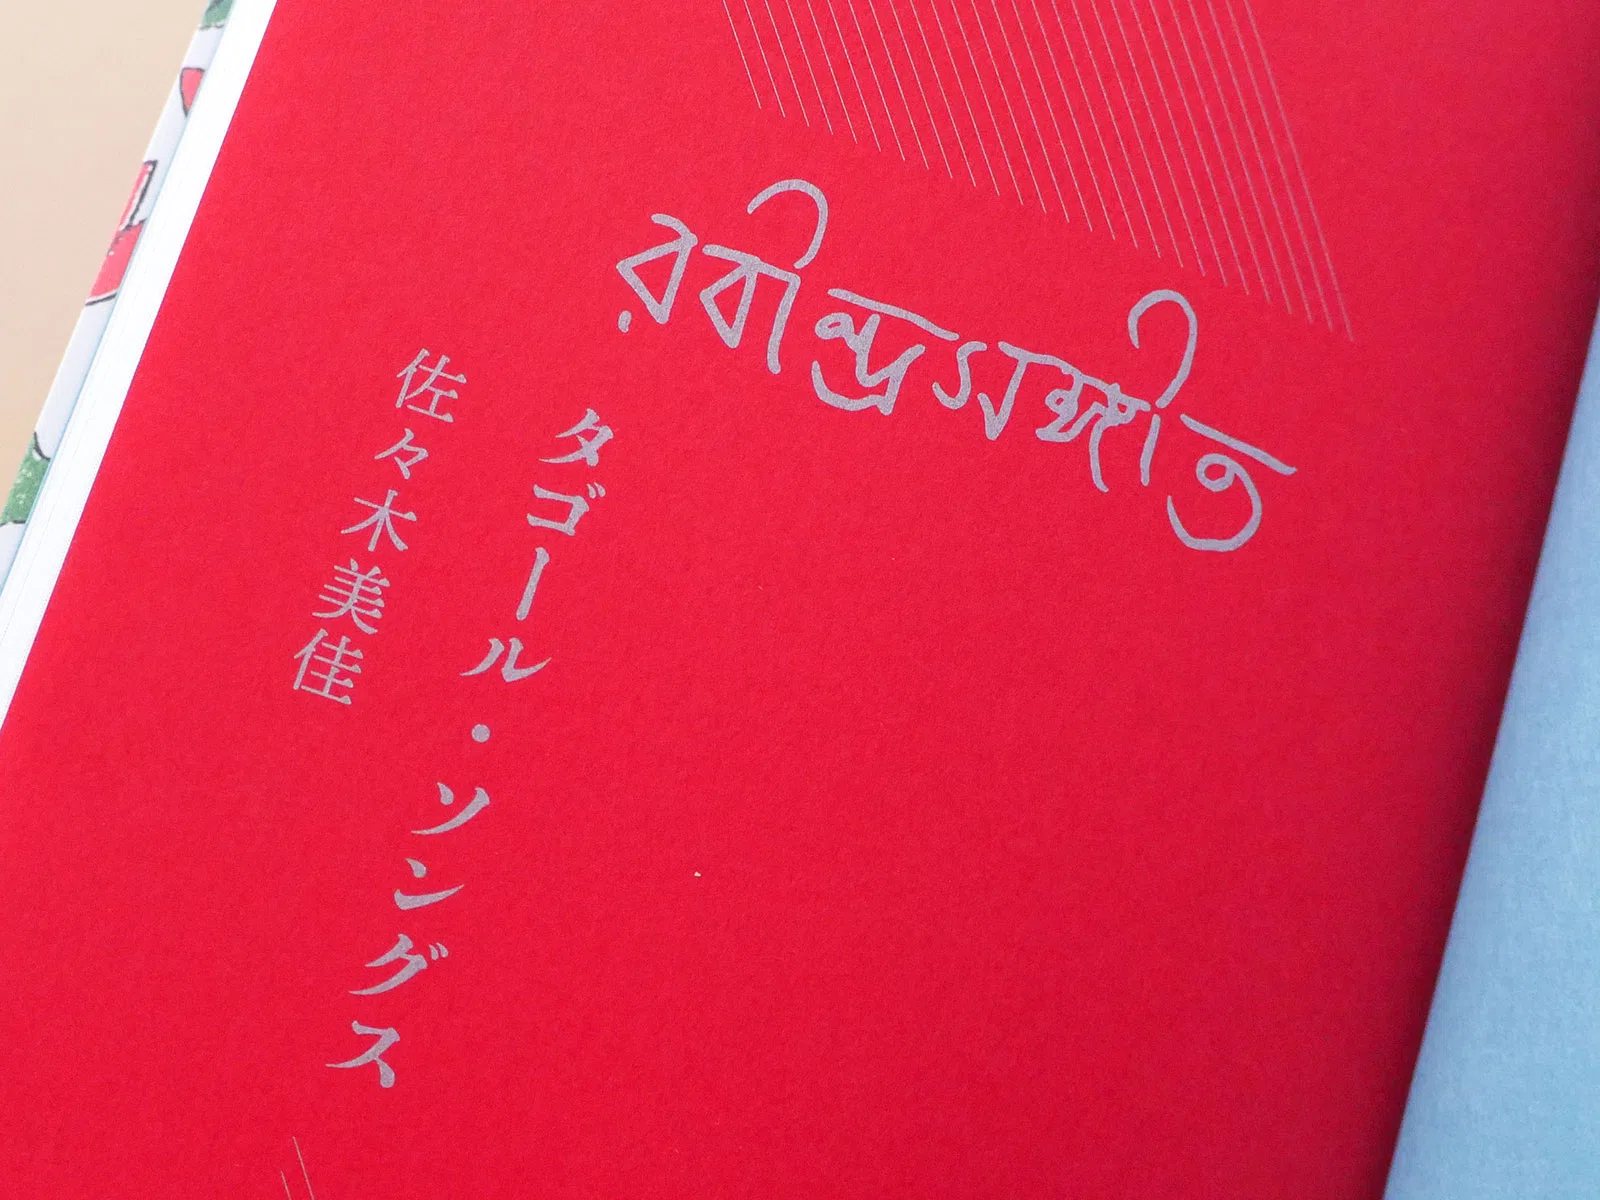 রবীন্দ্রসঙ্গীত
タゴール・ソングス
佐々木美佳